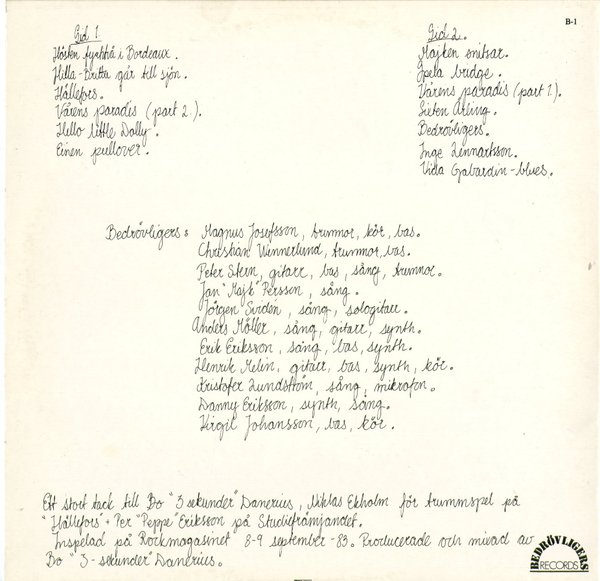 B-1
Sid 1.
Hösten fyrtitvå i Bordeaux.
Hilla-Britta går till sjön.
Hållefors.
Vårens paradis (part 2.).
Hello little Dolly.
Einen pullover.
Sid 2.
Majken snitsar.
Spela bridge.
Vårens paradis (part 1.)
Sixten Arling.
Bedrövligers.
Inge Lennartsson.
Villa Gabardin-blues.
Bedrövligers: Magnus Josefsson, trummor, kör, bas.
Christian Winnerlund, trummor, bas.
Peter Stern, gitarr, bas, sång, trummor.
Jan "Majk" Persson, sång.
Jörgen Svidén, sång, sologitarr.
Anders Möller, sång, gitarr, synth.
Erik Eriksson, sång, bas, synth.
Henrik Melin, gitarr, bas, synth, kör.
Kristofer Lundström, sång, mikrofon.
Danny Eriksson, synth, sång.
Virgil Johansson, bas, kör.
Ett stort tack till Bo "3 sekunder" Danerius, Niklas Ekholm för trummspel på
"Hållefors" + Per "Peppe" Eriksson på Studiefrämjandet.
Inspelad på Rockmagasinet 8-9 september -83. Producerade och mixad av
Bo "3-sekunder" Danerius.
BEDRÖVLIGERS
RECORDS